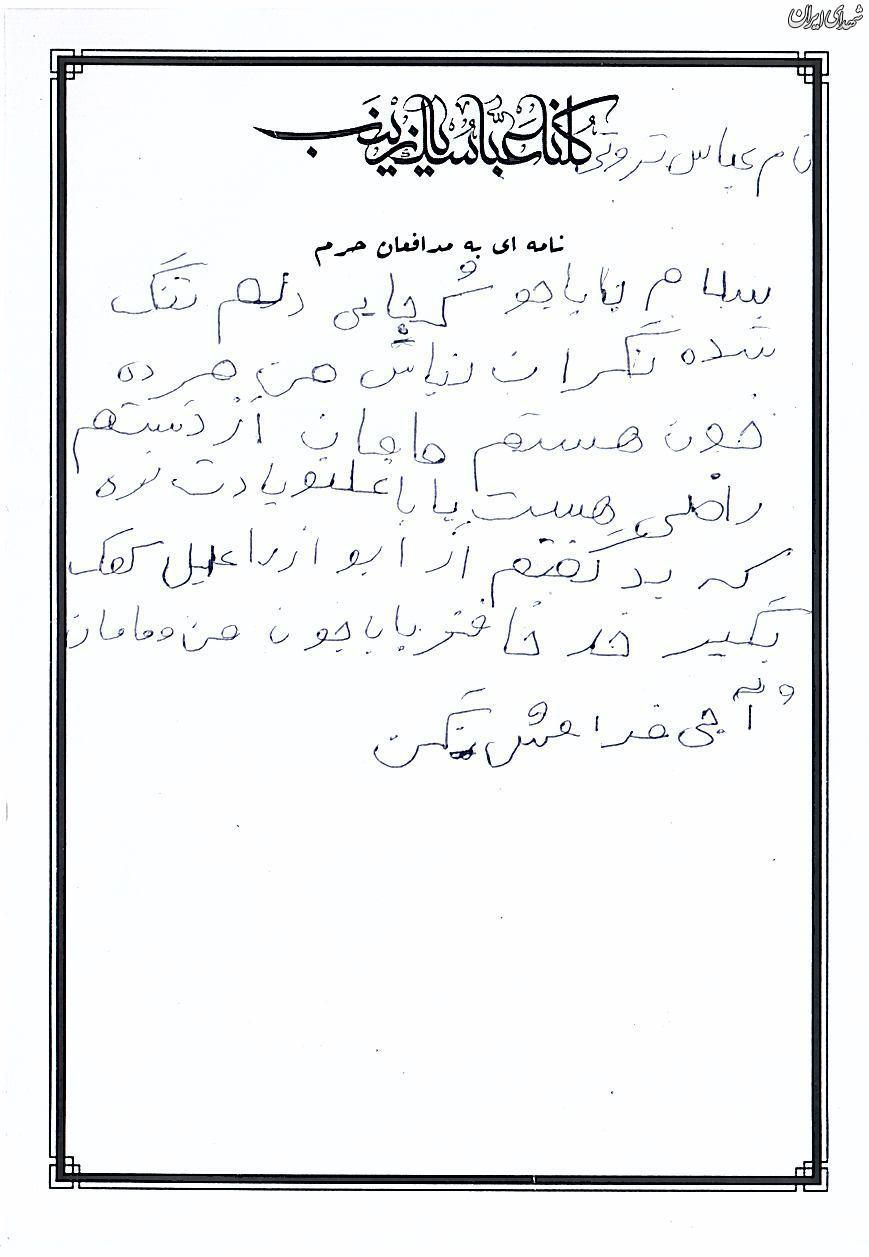 شهدای ایران
کلنا عباسک یا زینب
نام عباس تروتی
نامه ای به مدافعان حرم
سلام باباجو کُجایی دلهم تنگ
شده نگران نباش من مرده
خون هستم مامان از دستهم
راضی هست بابا علتو یادت نره
که بد گفتم از ابو ازراعیل کمک
بگیر خد خافتر باباجون من ومامان
و آجی فرامُش نکن